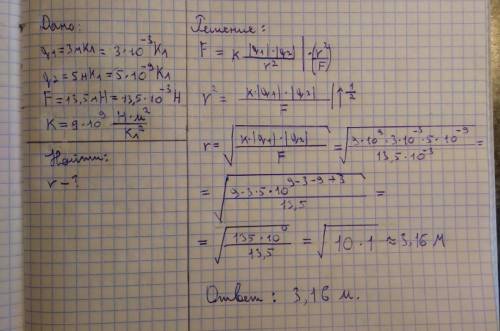 Дано:
q₁=3мКл=3·10⁻³Кл
q₂=5нКл=5·10⁻⁹Кл
F=13,5мН=13,5·10⁻³Н
K=9·10⁹ Н·м²/Кл²
Найти:
r-?
Решение:
F = K |q₁|·|q₂|/r² | ·(r²/F)
r² = K·|q₁|·|q₂|/F |↑½
r=√(K·|q₁|·|q₂|/F) = √(9·10⁹·3·10⁻³·5·10⁻⁹/13,5·10⁻³) =
= √(9·3·5·10⁹⁻³⁻⁹⁺³/13,5) =
= √(135·10⁰/13,5) = √(10·1) ≈3,16 м
Ответ: 3,16 м.